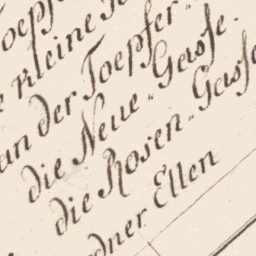 kleine
an der Toepfer-
die Neue-Gasse.
die Rosen-Gasse
dner Ellen